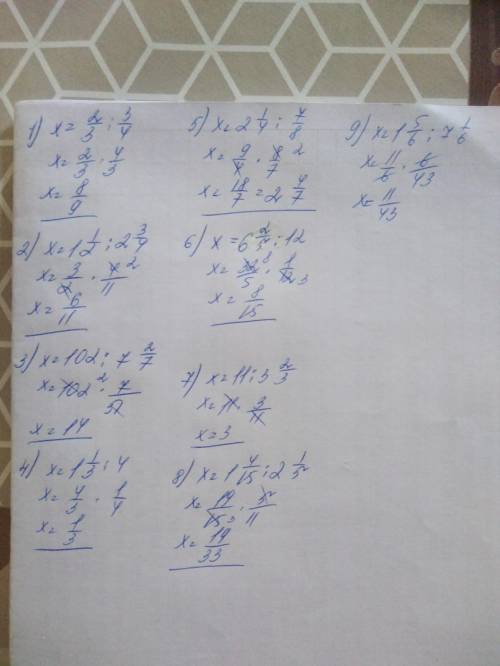 1) x = 2/3 : 3/4
x = 2/3 · 4/3
x = 8/9
2) x = 1 1/2 : 2 3/4
x = 3/2 · 4/11 2
x = 6/11
3) x = 102 : 7 2/7
x = 102 2 · 7/51
x = 14
4) x = 1 1/3 : 4
x = 4/3 · 1/4
x = 1/3
5) x = 2 1/4 : 7/8
x = 9/4 · 8/7 2
x = 18/7 = 2 4/7
6) x = 6 2/5 : 12
x = 32/5 8 · 1/12 3
x = 8/15
7) x = 11 : 3 2/3
x = 11 · 3/11
x = 3
8) x = 1 4/15 : 2 1/5
x = 19/15 3 · 5/11
x = 19/33
9) x = 1 5/6 : 7 1/6
x = 11/6 · 6/43
x = 11/43